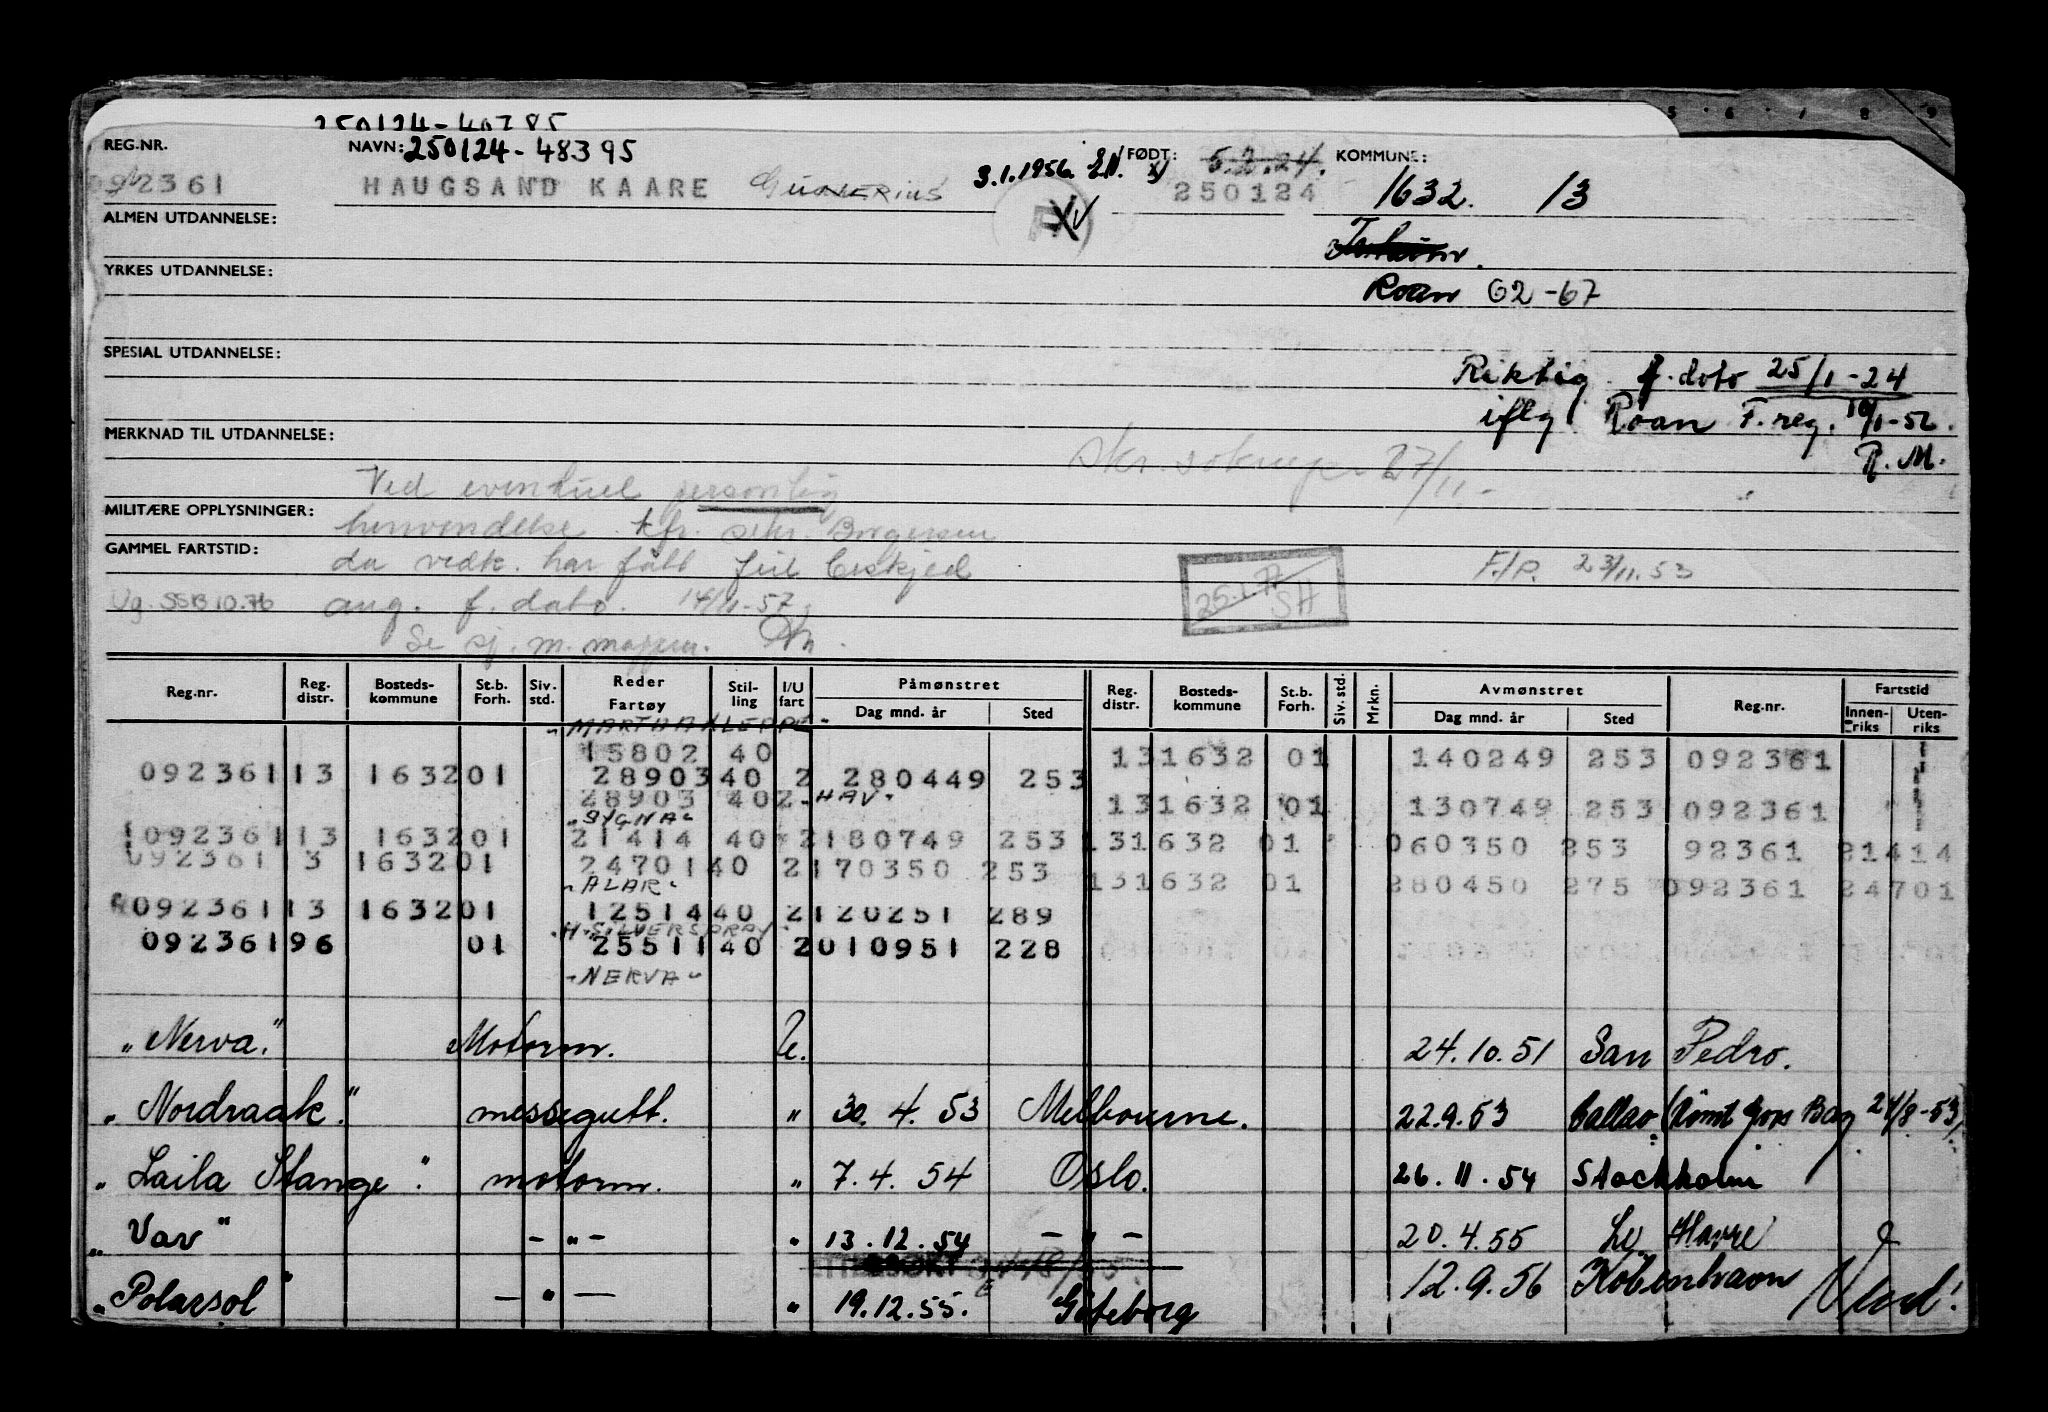 5 6 7 8 9
REG.NR. NAVN: 250124-48395 3.1.1956. FØDT: 5.2.24. KOMMUNE:
092361 HAUGSAND KAARE 250124 1632. 13
ALMEN UTDANNELSE:
YRKES UTDANNELSE:
Roan 62-67
SPESIAL UTDANNELSE:
Riktig f. dato 25/1-24
iflg Roan F.reg. 10/1-52.
MERKNAD TIL UTDANNELSE: R.M.
Ved eventuel personlig 27/11-
MILITÆRE OPPLYSNINGER:
henvendelse kfr. sekr Borgersen
GAMMEL FARTSTID: da vedk. har fått feil
F.P. 23/11.53
Vg. SSB 10.76 ang. f. dato. 14/11-57.
Se sj. m. mappen.
Reg.nr. Reg. distr. Bosteds-kommune St.b. Forh. Siv. std. Reder Fartøy Stil-ling I/U fart Påmønstret Dag mnd. år Sted Reg. distr. Bosteds-kommune St.b. Forh. Siv. std. Mrkn. Avmønstret Dag mnd. år Sted Reg.nr. Fartstid Innen-riks Uten-riks
"MARTHA KLEPPE"
15802 40 131632 01 140249 253 092361
092361 13 1632 01 28903 40 2 280449 253
28903 40 2 "HAV" 131632 01 130749 253 092361
"SYGNA"
092361 13 1632 01 21414 40 2 180749 253 131632 01 060350 253 92361 21414
092361 13 1632 01 24701 40 2 170350 253 131632 01 280450 275 092361 24701
"ALAR"
092361 13 1632 01 12514 40 2 120251 289
"H-SILVERSPRAY"
092361 96 01 25511 40 2 010951 228
"NERVA"
"Nerva." Motorm. U. 24.10.51 San Pedro.
"Nordraak." messegutt. " 30. 4. 53 Melbourne. 22.9.53 Callao (Rømt Gors Bay 24/8-53)
"Laila Stange". motorm. " 7. 4. 54 Oslo. 26. 11. 54 Stockholm
"Vav" - " - " 13. 12. 54 - " - 20. 4. 55 Le Havre
"Polarsol" - " - " 19.12.55. Göteborg 12. 9. 56 København Vend!